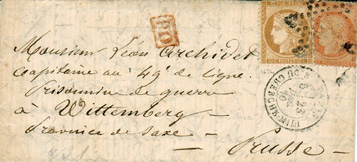 PD
Monsieur Léon Archidet
Capitaine au 49e de ligne
Prisonnier de guerre
à Wittemberg
Province de Saxe
Prusse
DU CHERCHE